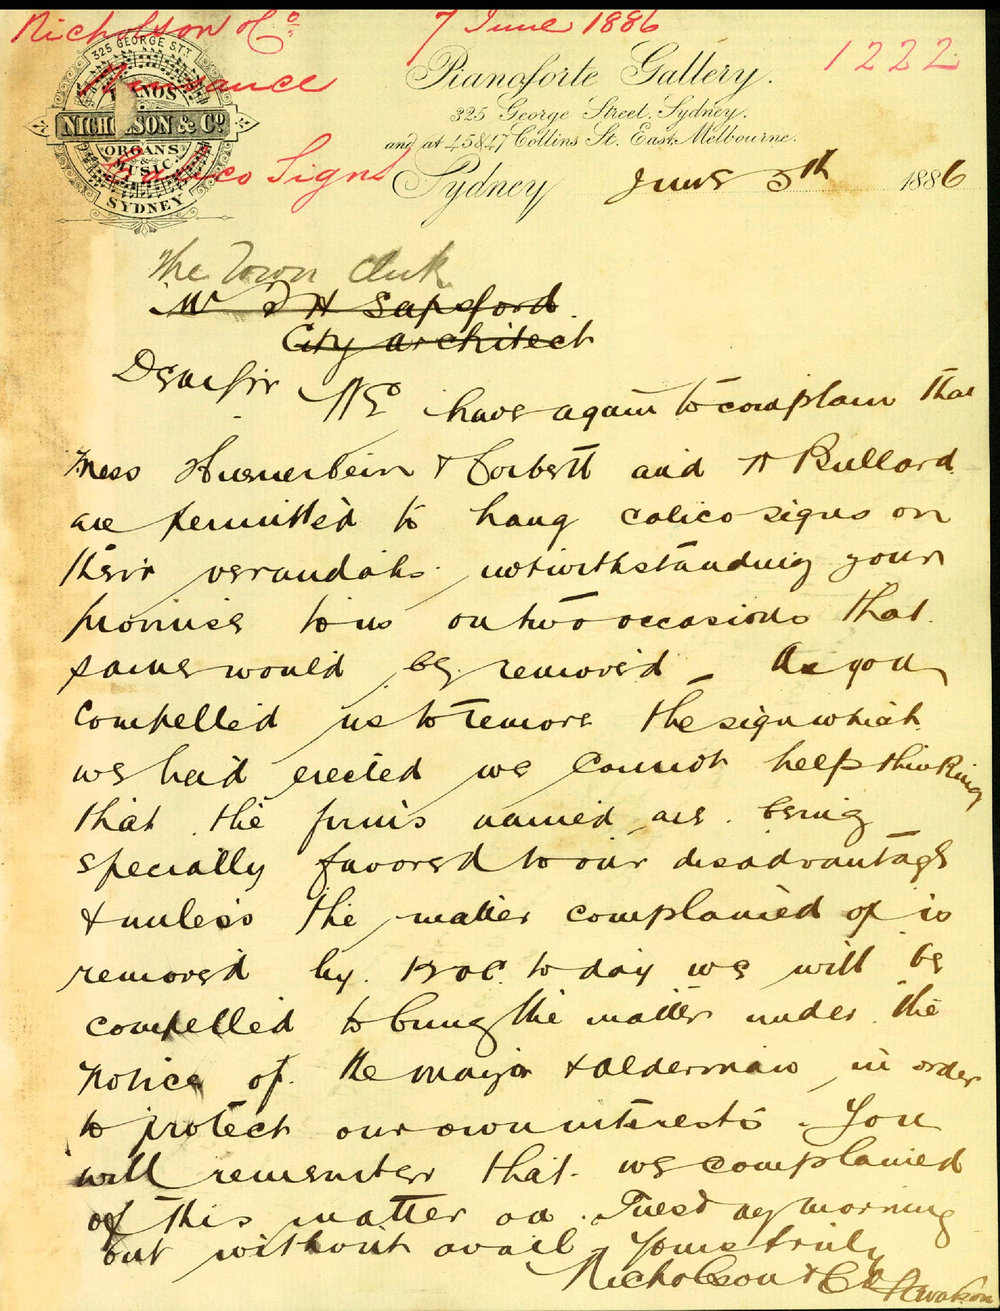 Nicholson & Co 7 June 1886
1222
Nuisance
Calico Signs
325 GEORGE ST.
PIANOS
NICHOLSON & CO
ORGANS
&
MUSIC
SYDNEY
Pianoforte Gallery.
325 George Street, Sydney.
and at 45 & 47 Collins St. East, Melbourne.
Sydney June 5th 1886
The Town Clerk
Mr Sapsford
City architect
Dear Sir We have again to complain that
Mess Huenerbein & Corbett and H Bullard
are permitted to hang calico signs on
their verandahs notwithstanding your
promise to us on two occasions that
same would be removed As you
compelled us to remove the sign which
we had erected we cannot help thinking
that the firms named are being
specially favored to our disadvantage
& unless the matter complained of is
removed by 12 oC. today we will be
compelled to bring the matter under the
notice of the mayor & aldermain in order
to protect our own interests. You
will remember that we complained
of this matter on Tuesday morning
but without avail Yours truly
Nicholson & Co